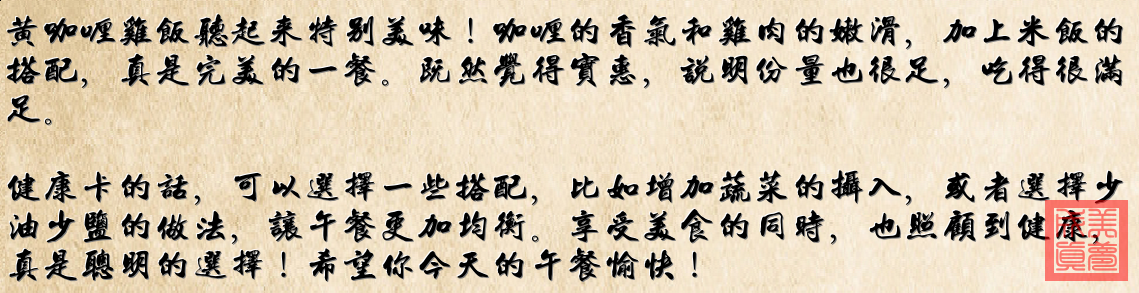 黃咖喱雞飯聽起來特別美味！咖喱的香氣和雞肉的嫩滑，加上米飯的
搭配，真是完美的一餐。既然覺得實惠，說明份量也很足，吃得很滿
足。
健康卡的話，可以選擇一些搭配，比如增加蔬菜的攝入，或者選擇少
油少鹽的做法，讓午餐更加均衡。享受美食的同時，也照顧到健康，
真是聰明的選擇！希望你今天的午餐愉快！